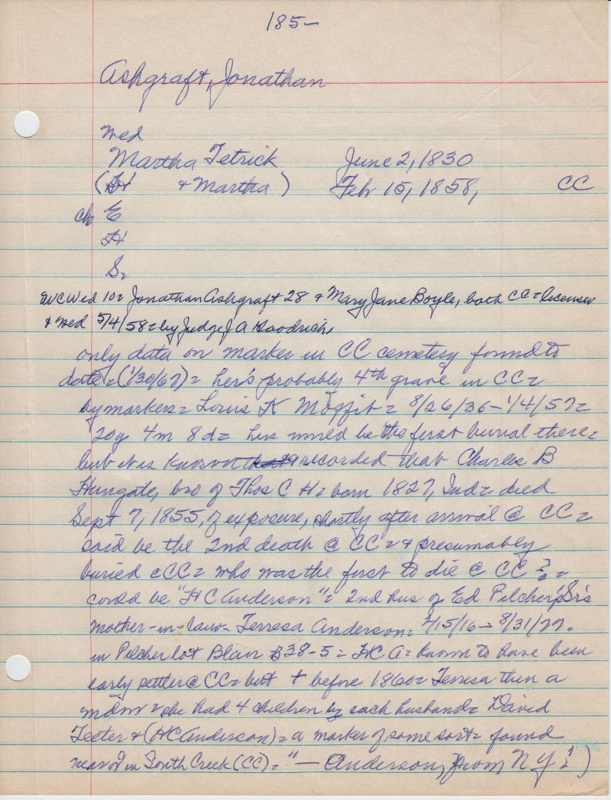 185-
Ashgraft, Jonathan
wed
Martha Tetrick June 2, 1830
( & Martha ) Feb 15, 1858, CC
ch E
H
S
Wed 10= Jonathan Ashgraft 28 & Mary Jane Boyle, both CC= license
& wed 5/4/58= by Judge J A Goodrich
only data on marker in CC cemetery found to
date= (1/30/67)= her's probably 4th grave in CC=
by markers= Louis K Moffit= 8/26/36-1/4/57=
20y 4m 8d= his would be the first burial there=
but it is known recorded that Charles B
Hungate, bro of Thos C H= born 1827, Ind= died
Sept 7, 1855, of exposure, shortly after arrival @ CC=
said be the 2nd death @ CC= & presumably
buried @ CC= who was the first to die @ CC ?=
could be "HC Anderson"= 2nd hus of Ed Pilcher, Sr's
mother-in-law- Terresa Anderson= /15/16-8/31/77.
in Pilcher lot Blair 38-5= HC A= known to have been
early settler @ CC= but + before 1860= Terresa then a
she had 4 children by each husband= David
Teeter & (HC Anderson)= a marker of some sort= found
near or in South Creek (CC)= "- Anderson, from NY")